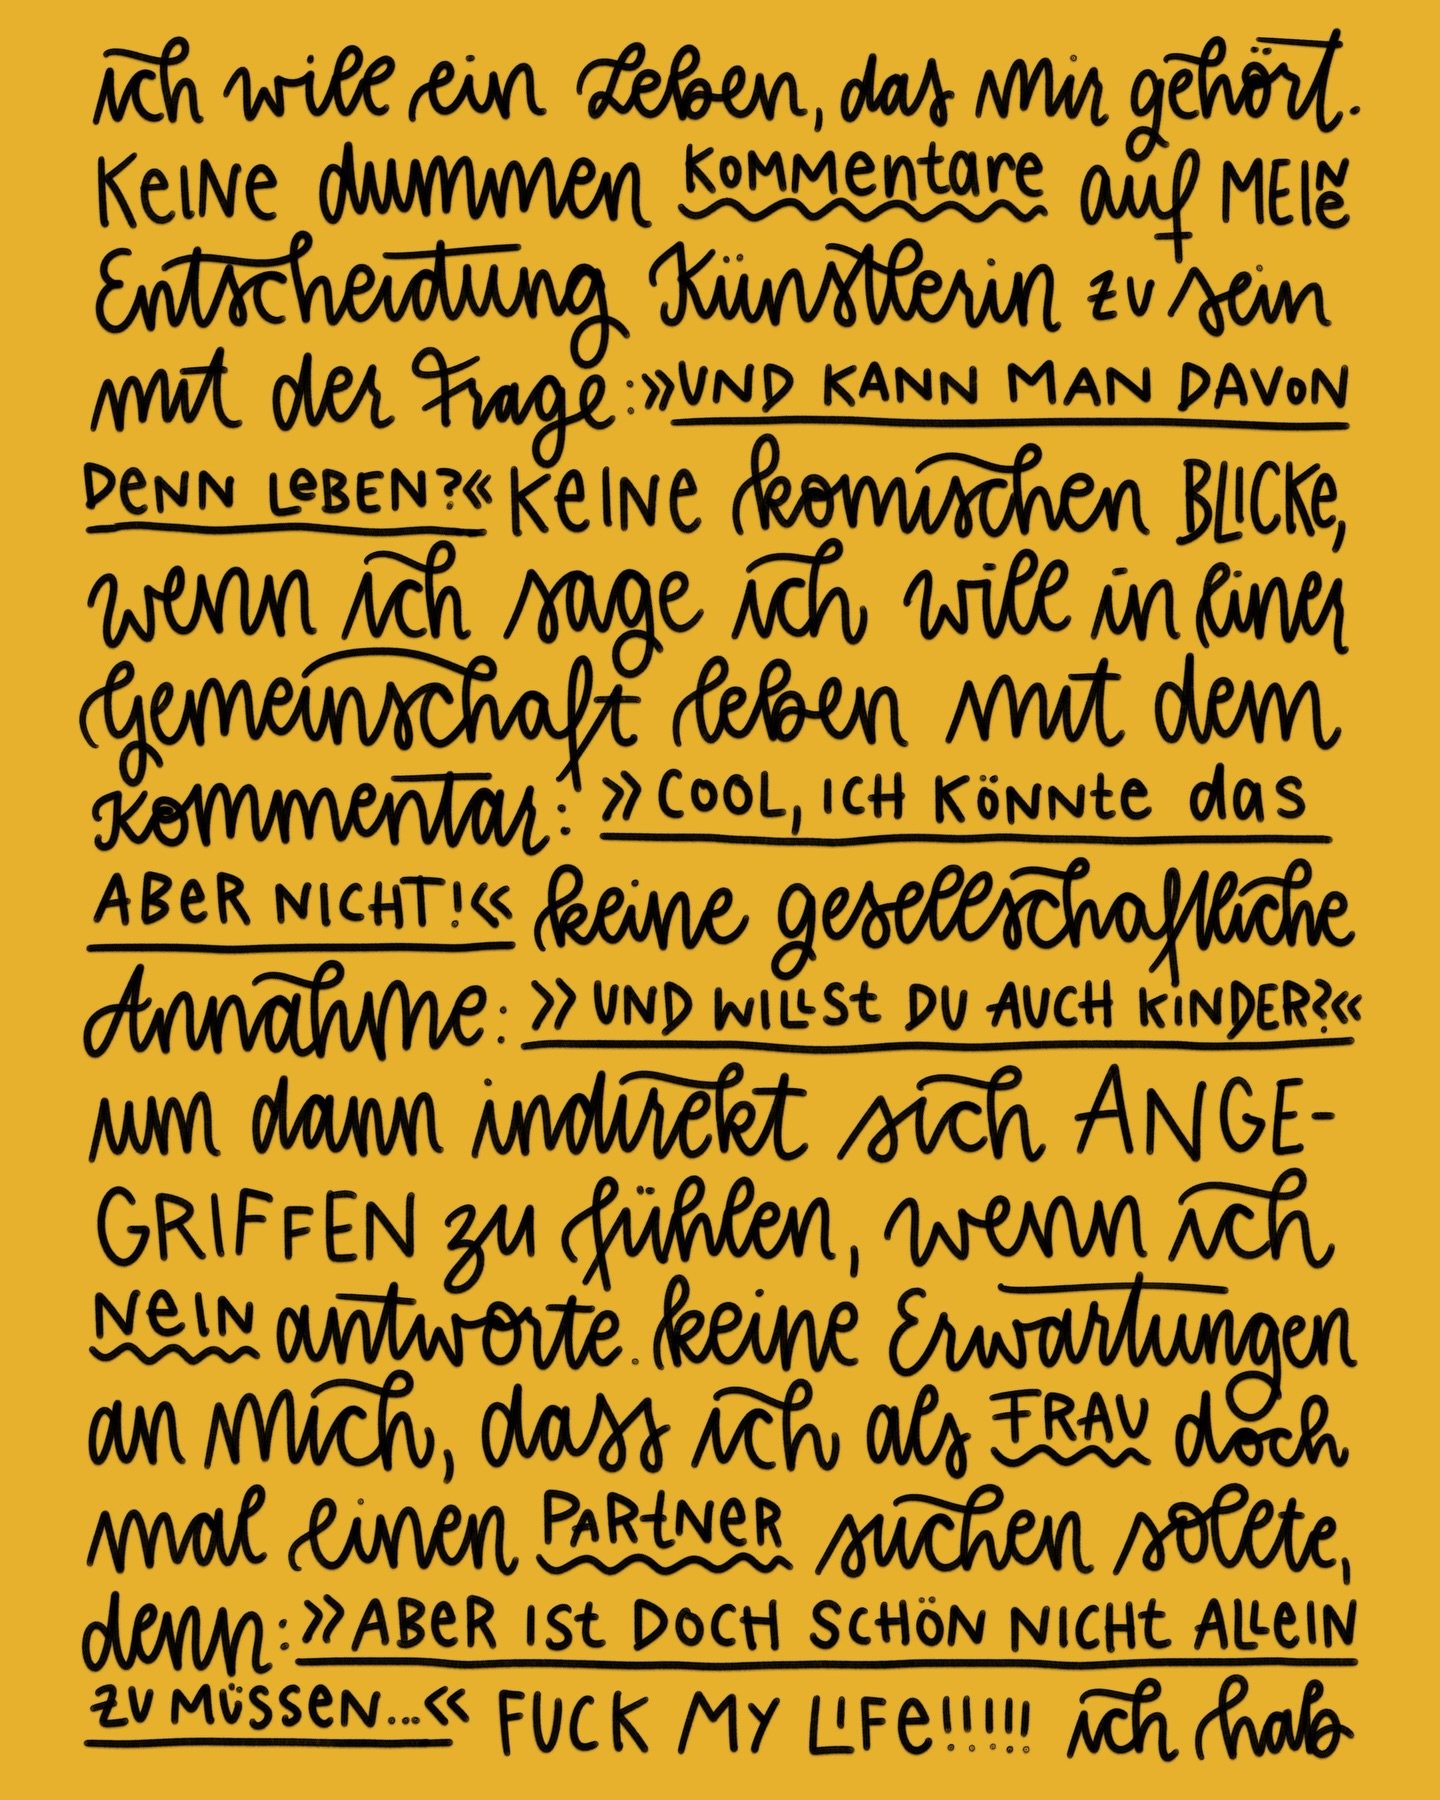 ich will ein Leben, das mir gehört.
KEINE dummen KOMMentare auf MEINE
Entscheidung Künstlerin zu sein
mit der Frage: »UND KANN MAN DAVON
DENN LEBEN?« KEINE komischen BLICKE,
wenn ich sage ich will in einer
Gemeinschaft leben mit dem
Kommentar: »COOL, ICH KÖNNte das
ABER NICHT!« keine gesellschaftliche
Annahme: »UND WILLSt DU AUCH KINDER?«
um dann indirekt sich ANGE-
GRIFFEN zu fühlen, wenn ich
NEIN antworte. keine Erwartungen
an mich, dass ich als FRAU doch
mal einen PARtNER suchen sollte,
denn: »ABER ISt DOCH SCHÖN NICHt ALLEIN
ZU MÜSSEN...« FUCK MY LIFE!!!!! ich hab